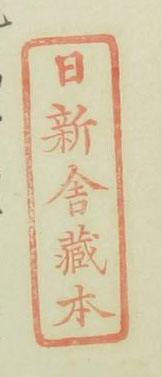 日新舎藏本